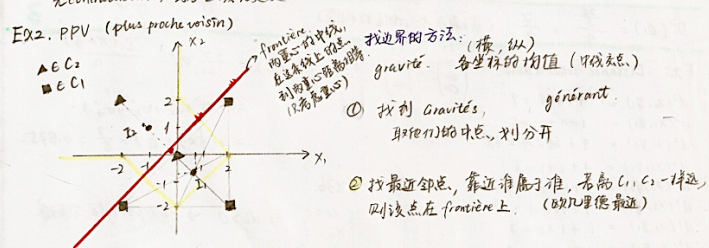 Ex2. PPV (plus proche voisin)
▲ ∈ C2
■ ∈ C1
X2
X1
2
1
-2
-1
1
2
-1
-2
I2
I1
frontière
两重心的中线,
在这条线上的点
到两重心距离相等
(只考虑重心)
找边界的方法:
(横, 纵)
gravité. 各坐标的均值
générant.
① 找到 Gravités,
取他们的中点, 划分开
② 找最近邻点, 靠近谁属于谁, 若离 C1, C2 一样远,
则该点在 frontière 上. (欧几里德最近)